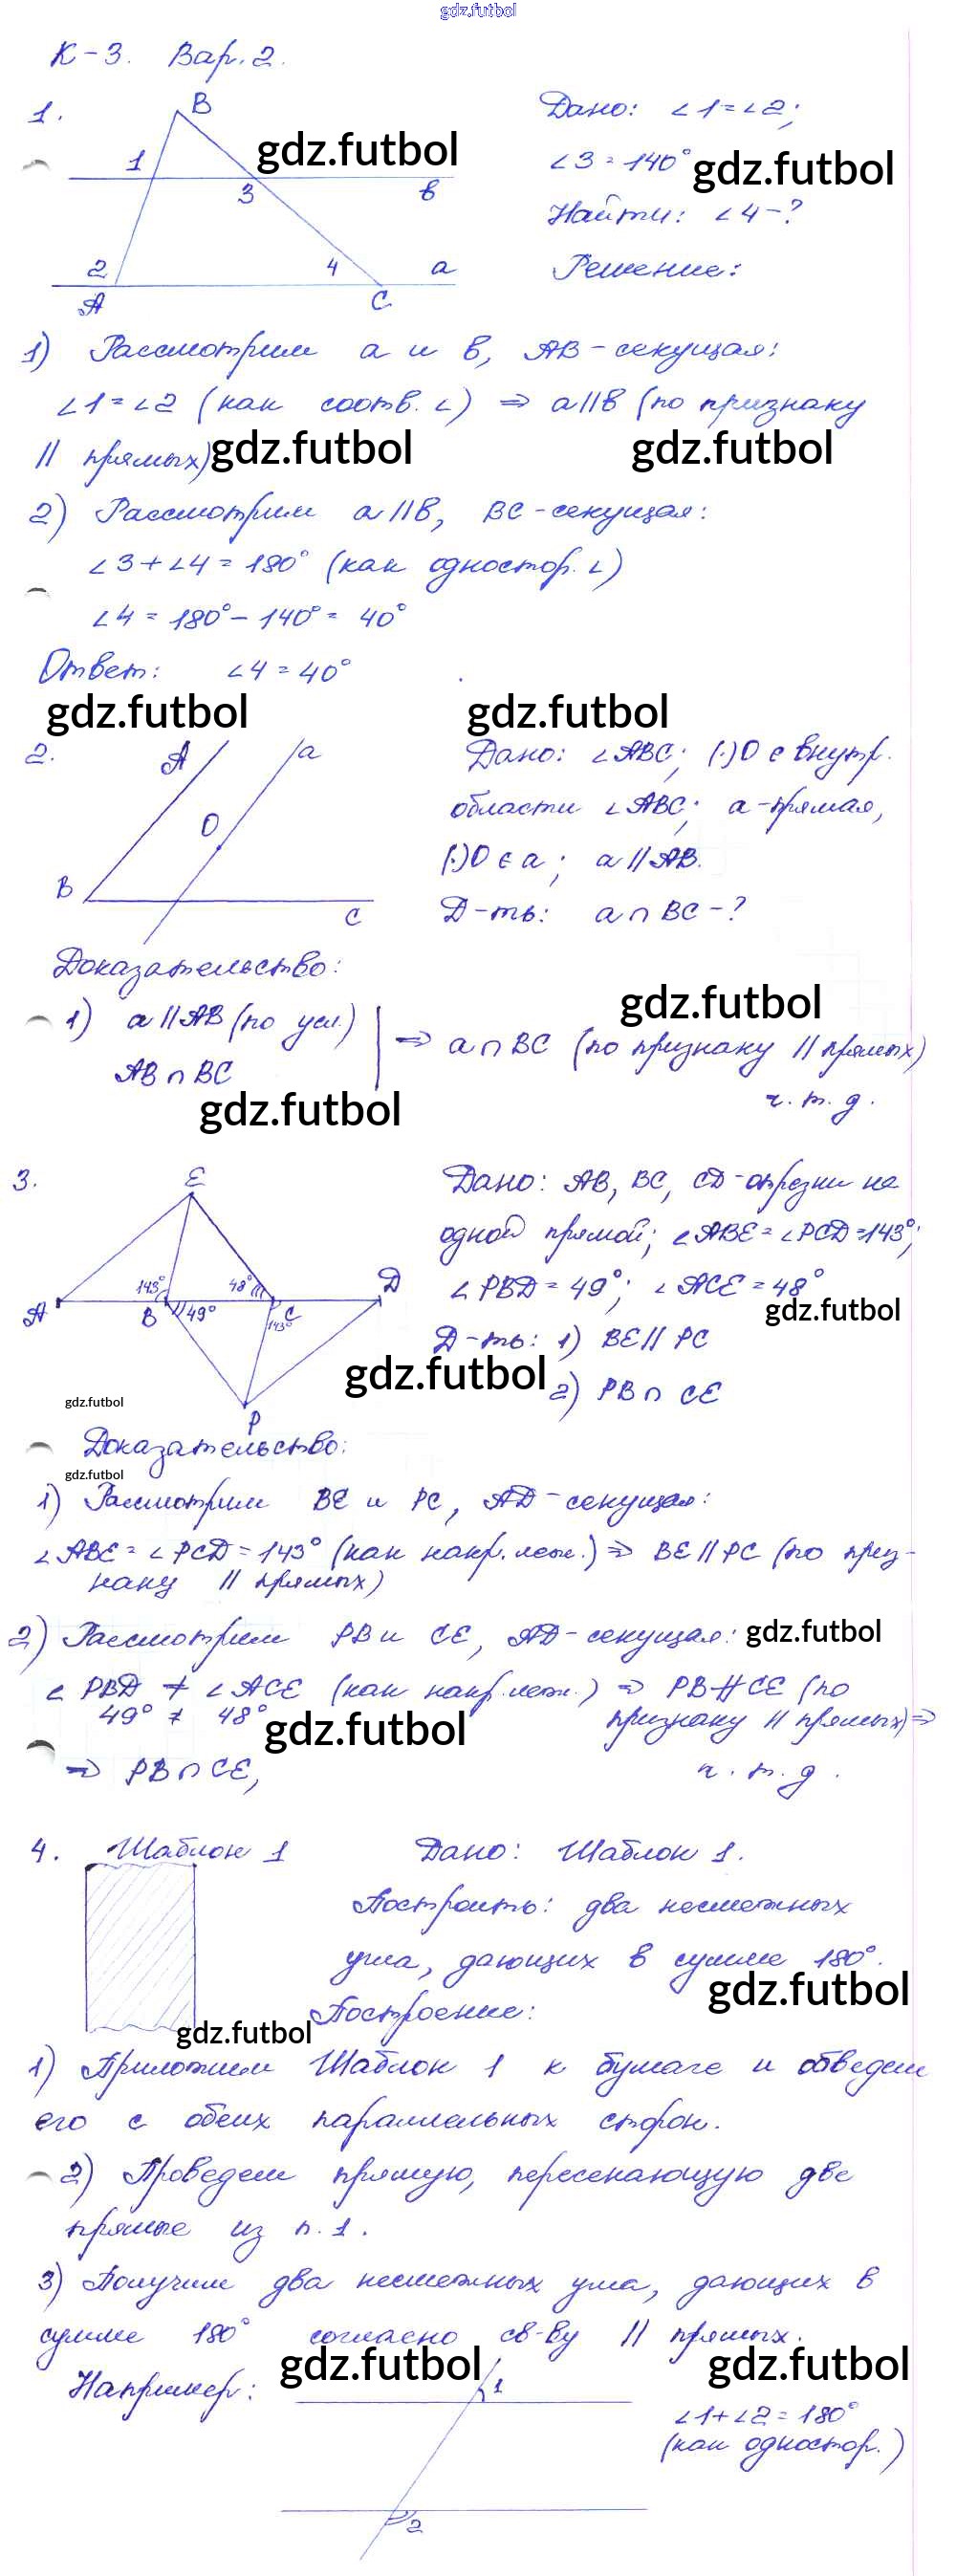 gdz.futbol
К-3. Вар. 2.
1.
B
1
3
в
2
4
a
A
C
gdz.futbol
Дано: ∠1=∠2;
∠3=140° gdz.futbol
Найти: ∠4-?
Решение:
1) Рассмотрим а и в, АВ-секущая:
∠1=∠2 (как соотв. ∠) ⇒ а||в (по признаку
|| прямых) gdz.futbol gdz.futbol
2) Рассмотрим а||в, ВС-секущая:
∠3+∠4=180° (как одностор. ∠)
∠4=180°-140°=40°
Ответ: ∠4=40°
gdz.futbol gdz.futbol
2.
A
a
O
B
C
Дано: ∠АВС; (·)О ∈ внутр.
области ∠АВС; а-прямая,
(·)О ∈ а; а||АВ.
Д-ть: а∩ВС-?
Доказательство:
gdz.futbol
1) а||АВ (по усл.)
АВ∩ВС
⇒ а∩ВС (по признаку || прямых)
gdz.futbol
ч.т.д.
3.
E
143°
48°
A
B
49°
C
143°
D
P
Дано: АВ, ВС, CD-отрезки на
одной прямой; ∠АВЕ=∠PCD=143°;
∠PBD=49°; ∠ACE=48°
gdz.futbol
Д-ть: 1) ВЕ||РС
gdz.futbol 2) РВ∩СЕ
gdz.futbol
Доказательство:
gdz.futbol
1) Рассмотрим ВЕ и РС, AD-секущая:
∠АВЕ=∠PCD=143° (как накр. леж.) ⇒ ВЕ||РС (по приз-
наку || прямых)
2) Рассмотрим РВ и СЕ, AD-секущая: gdz.futbol
∠PBD ≠ ∠ACE (как накр. леж.) ⇒ РВ∦СЕ (по
49° ≠ 48° gdz.futbol признаку || прямых) ⇒
⇒ РВ∩СЕ, ч.т.д.
4. Шаблон 1
Дано: Шаблон 1.
Построить: два несмежных
угла, дающих в сумме 180°.
gdz.futbol
Построение:
gdz.futbol
1) Приложим Шаблон 1 к бумаге и обведем
его с обеих параллельных сторон.
2) Проведем прямую, пересекающую две
прямые из п. 1.
3) Получим два несмежных угла, дающих в
сумме 180° согласно св-ву || прямых.
gdz.futbol gdz.futbol
Например:
1
2
∠1+∠2=180°
(как одностор.)